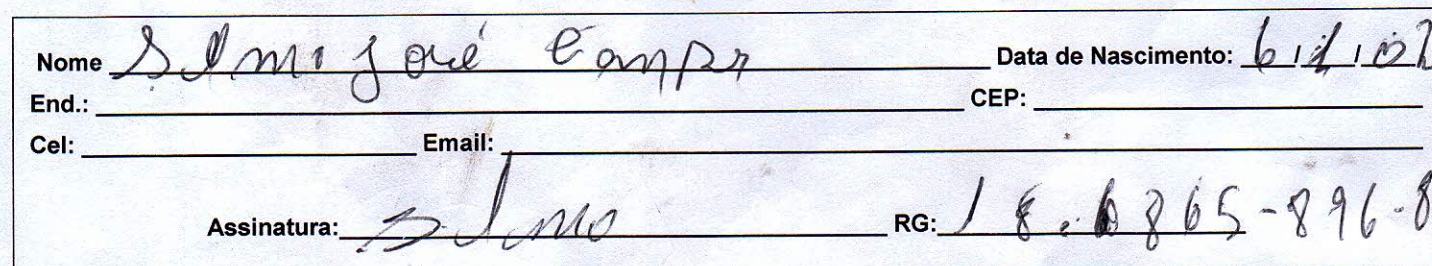 Nome Selmo José Campos Data de Nascimento: 6/1/02
End.: CEP:
Cel: Email:
Assinatura: Selmo RG: 18.6865-896-8